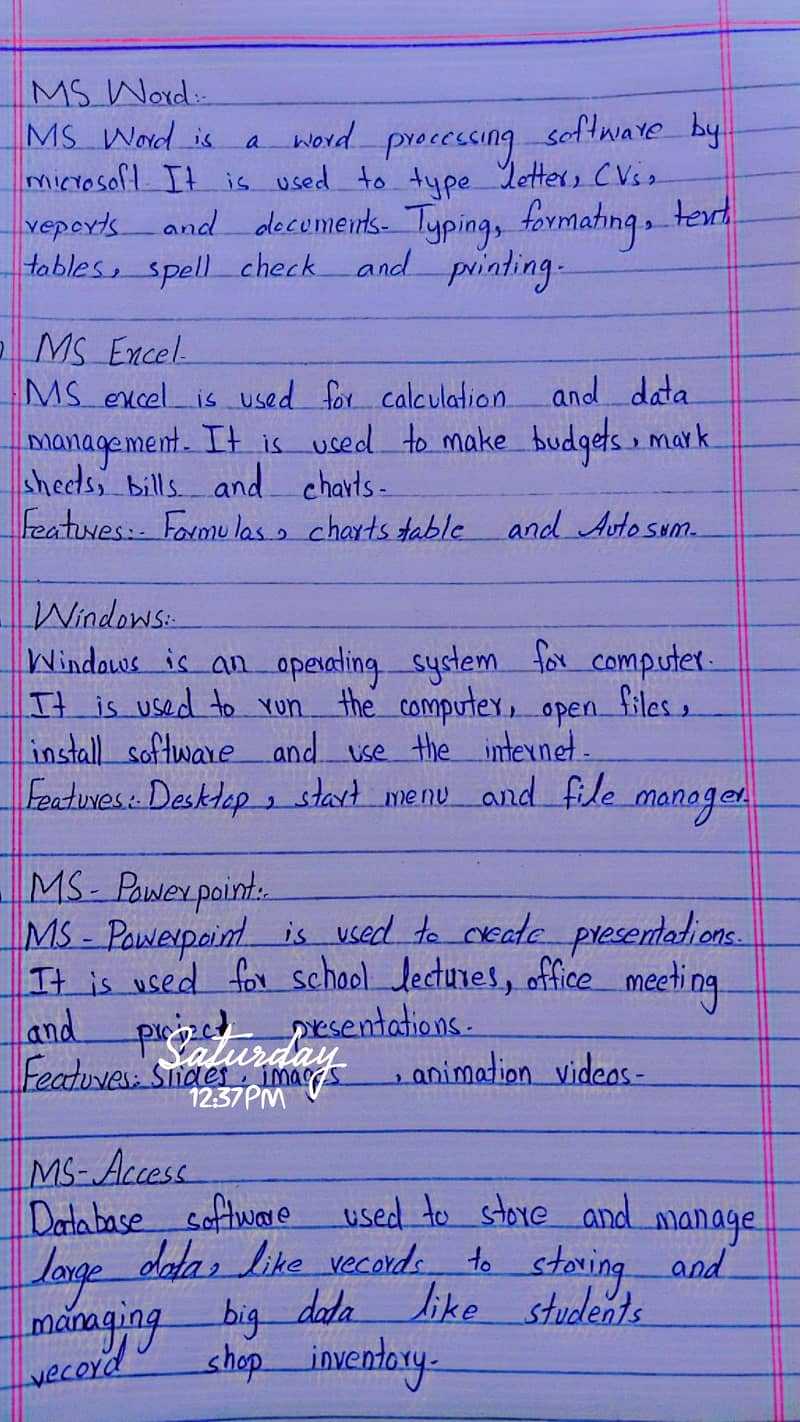 MS Word:-
MS Word is a word processing software by
microsoft. It is used to type letter, CVs,
reports and documents- Typing, formating, text
tables, spell check and printing-
MS Excel-
MS excel is used for calculation and data
management- It is used to make budgets, mark
sheets, bills and charts-
Features:- Formulas, charts table and Auto sum-
Windows:-
Windows is an operating system for computer.
It is used to run the computer, open files,
install software and use the internet-
Features:- Desktop, start menu and file manager.
MS- Powerpoint:-
MS- Powerpoint is used to create presentations.
It is used for school lectures, office meeting
and project presentations.
Saturday
Features: Slides, images , animation videos-
12:37PM
MS-Access
Database software used to store and manage
large data, like records to storing and
managing big data like students
record shop inventory-